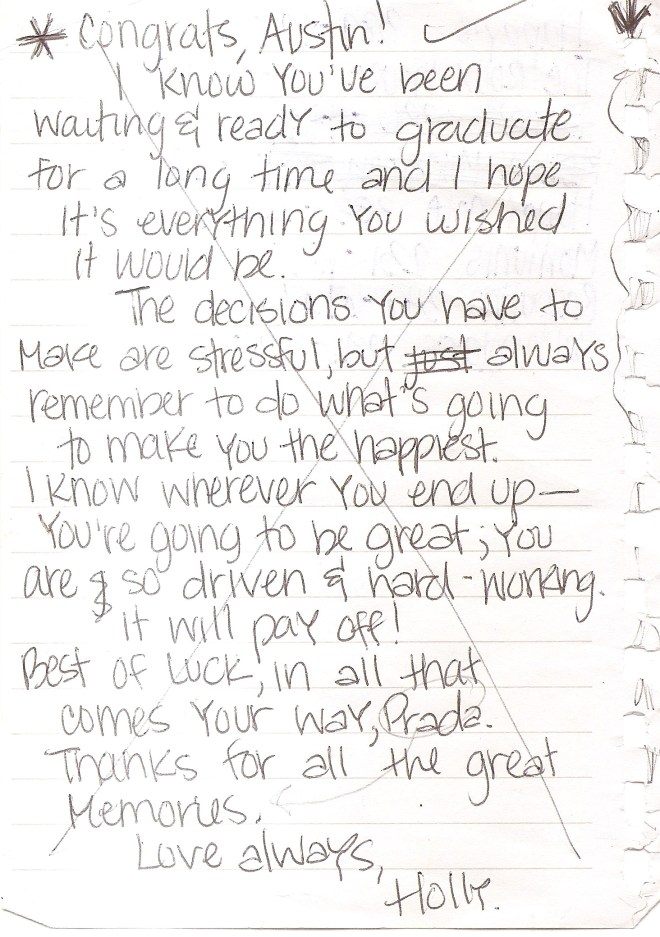 * Congrats, Austin!
I know you've been
waiting & ready to graduate
for a long time and I hope
it's everything you wished
it would be.
The decisions you have to
make are stressful, but just always
remember to do what's going
to make you the happiest.
I know wherever you end up—
you're going to be great; you
are & so driven & hard-working.
it will pay off!
Best of luck, in all that
comes your way, Prada.
Thanks for all the great
memories.
Love always,
Holly.